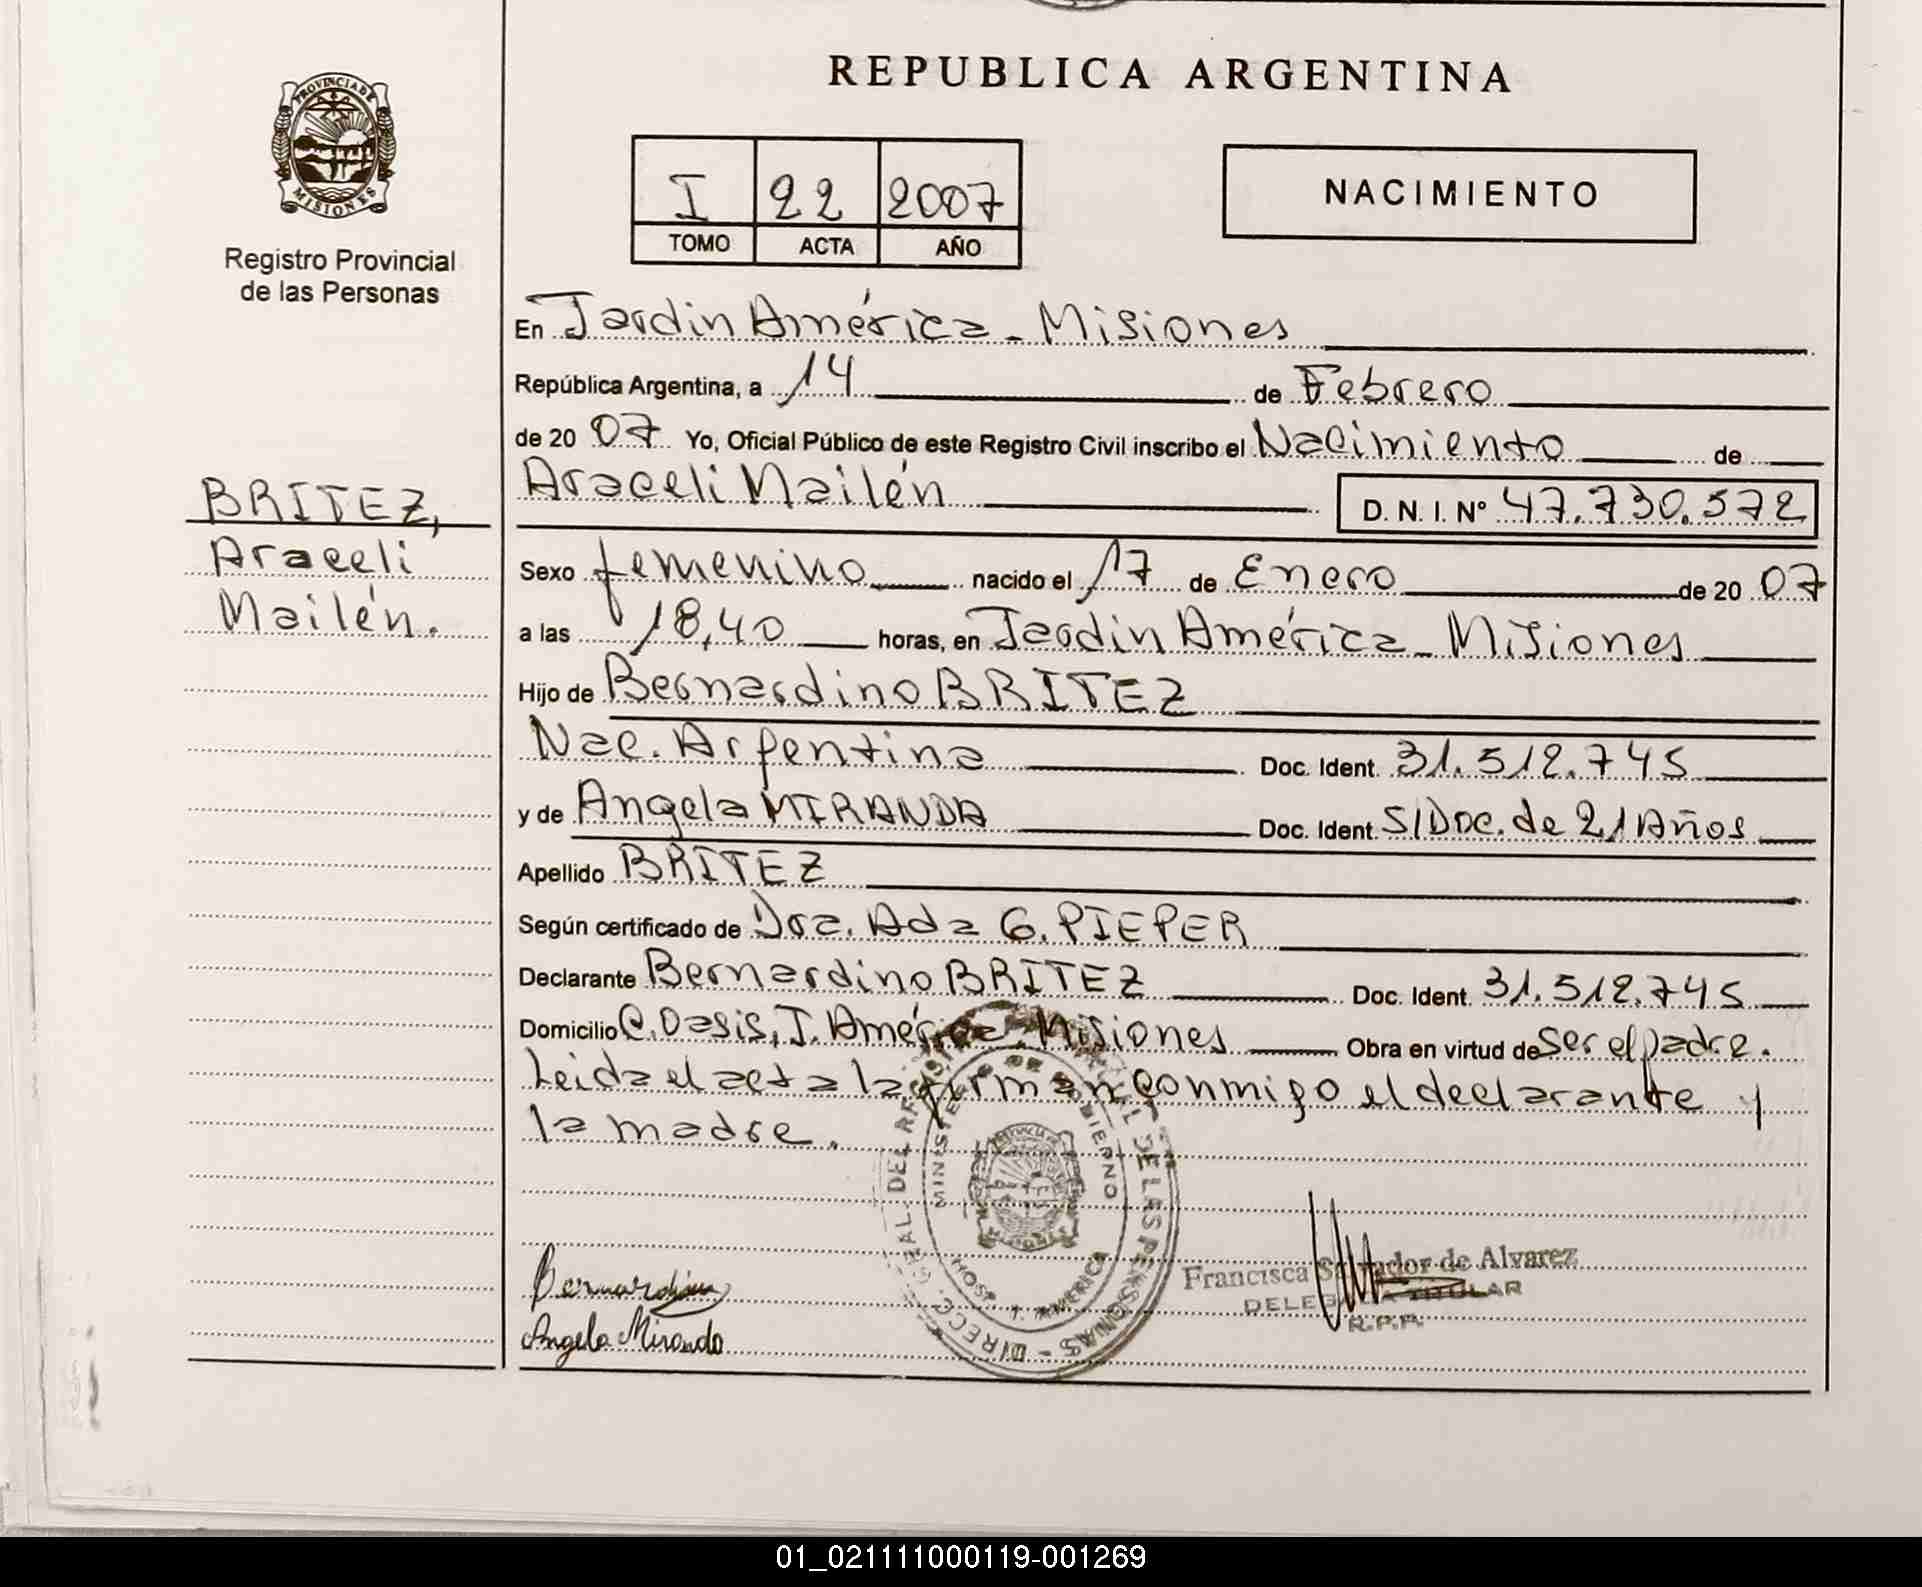 REPUBLICA ARGENTINA
PROVINCIA DE
MISIONES
Registro Provincial
de las Personas
I 22 2007
TOMO ACTA AÑO
NACIMIENTO
BRITEZ,
Araceli
Mailén.
En Jardin América - Misiones
República Argentina, a 14 de Febrero
de 20 07 Yo, Oficial Público de este Registro Civil inscribo el Nacimiento de
Araceli Mailén D. N. I. Nº 47.730.572
Sexo femenino nacido el 17 de Enero de 20 07
a las 18,40 horas, en Jardin América - Misiones
Hijo de Bernardino BRITEZ
Nac. Argentina Doc. Ident. 31.512.745
y de Angela MIRANDA Doc. Ident. S/Doc. de 21 Años
Apellido BRITEZ
Según certificado de Dra. Ada G. PIEPER
Declarante Bernardino BRITEZ Doc. Ident. 31.512.745
Domicilio C. Oasis, J. América, Misiones Obra en virtud de Ser el padre.
Leida el acta la firman conmigo el declarante y
la madre.
MINISTERIO DE GOBIERNO
DE LAS PERSONAS - DIRECC. GRAL. DEL
MISIONES
Bernardino
Angela Miranda
Francisca Salvador de Alvarez
DELEGADA TITULAR
R.P.P.
01_021111000119-001269